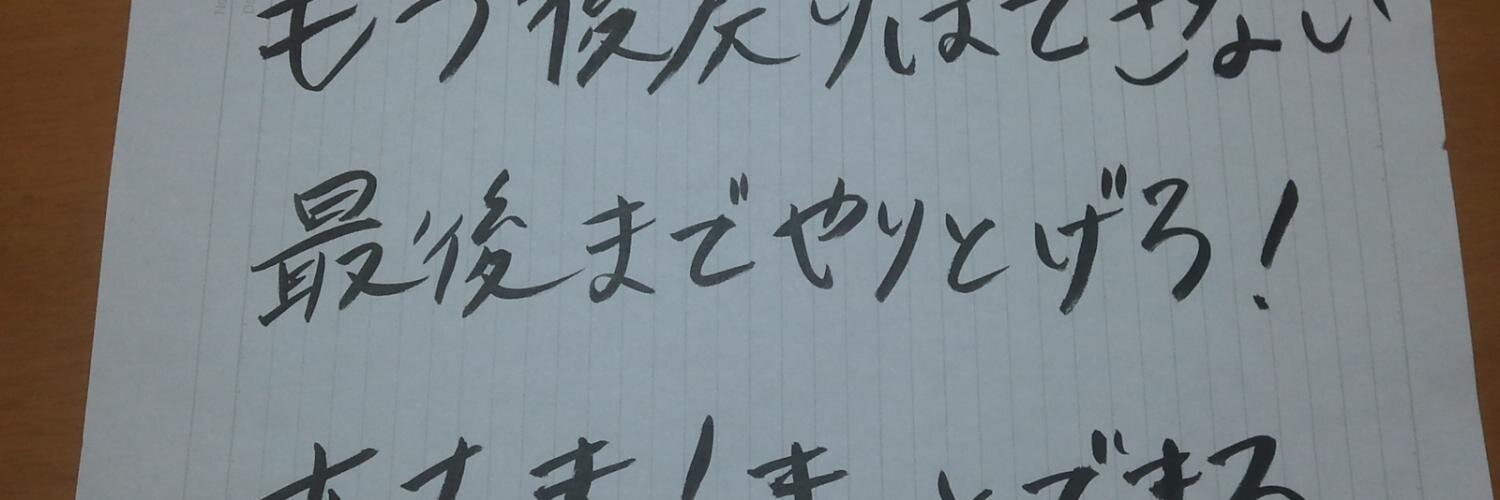 もう後戻りはできない
最後までやりとげろ!
できる